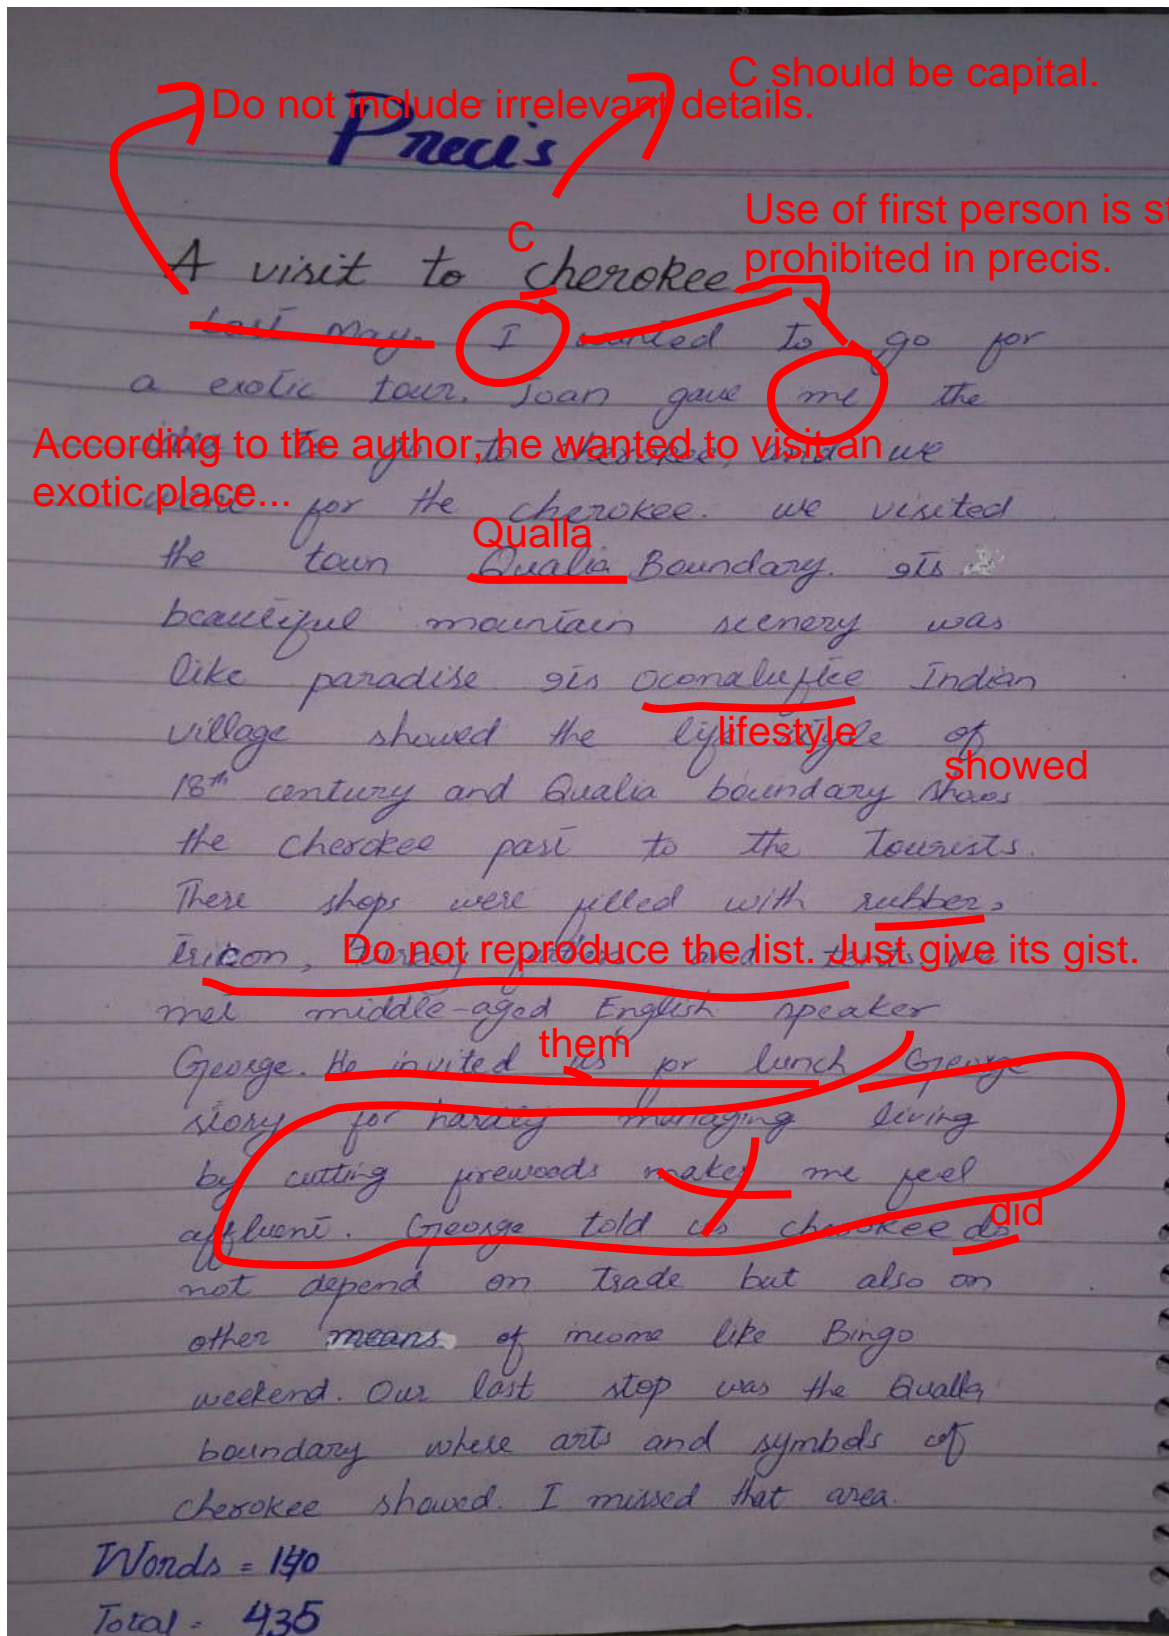 C should be capital.
Do not include irrelevant details.
Precis
Use of first person is st
prohibited in precis.
C
A visit to cherokee
Last May. I wanted to go for
a exotic tour. Joan gave me the
According to the author, he wanted to visit an
idea to go to cherokee, and we
exotic place...
went for the cherokee. we visited
Qualla
the town Qualia Boundary. Its
beautiful mountain scenery was
like paradise. Its Oconaluftee Indian
lifestyle
village showed the life style of
showed
18th century and Qualia boundary shows
the cherokee past to the tourists.
There shops were filled with rubber,
Do not reproduce the list. Just give its gist.
met middle-aged English speaker
them
George. He invited us for lunch George
story for hardly managing living
by cutting firewoods makes me feel
did
affluent. George told us cherokee do
not depend on trade but also on
other means of income like Bingo
weekend. Our last stop was the Qualla
boundary where arts and symbols of
cherokee showed. I missed that area.
Words = 140
Total = 435